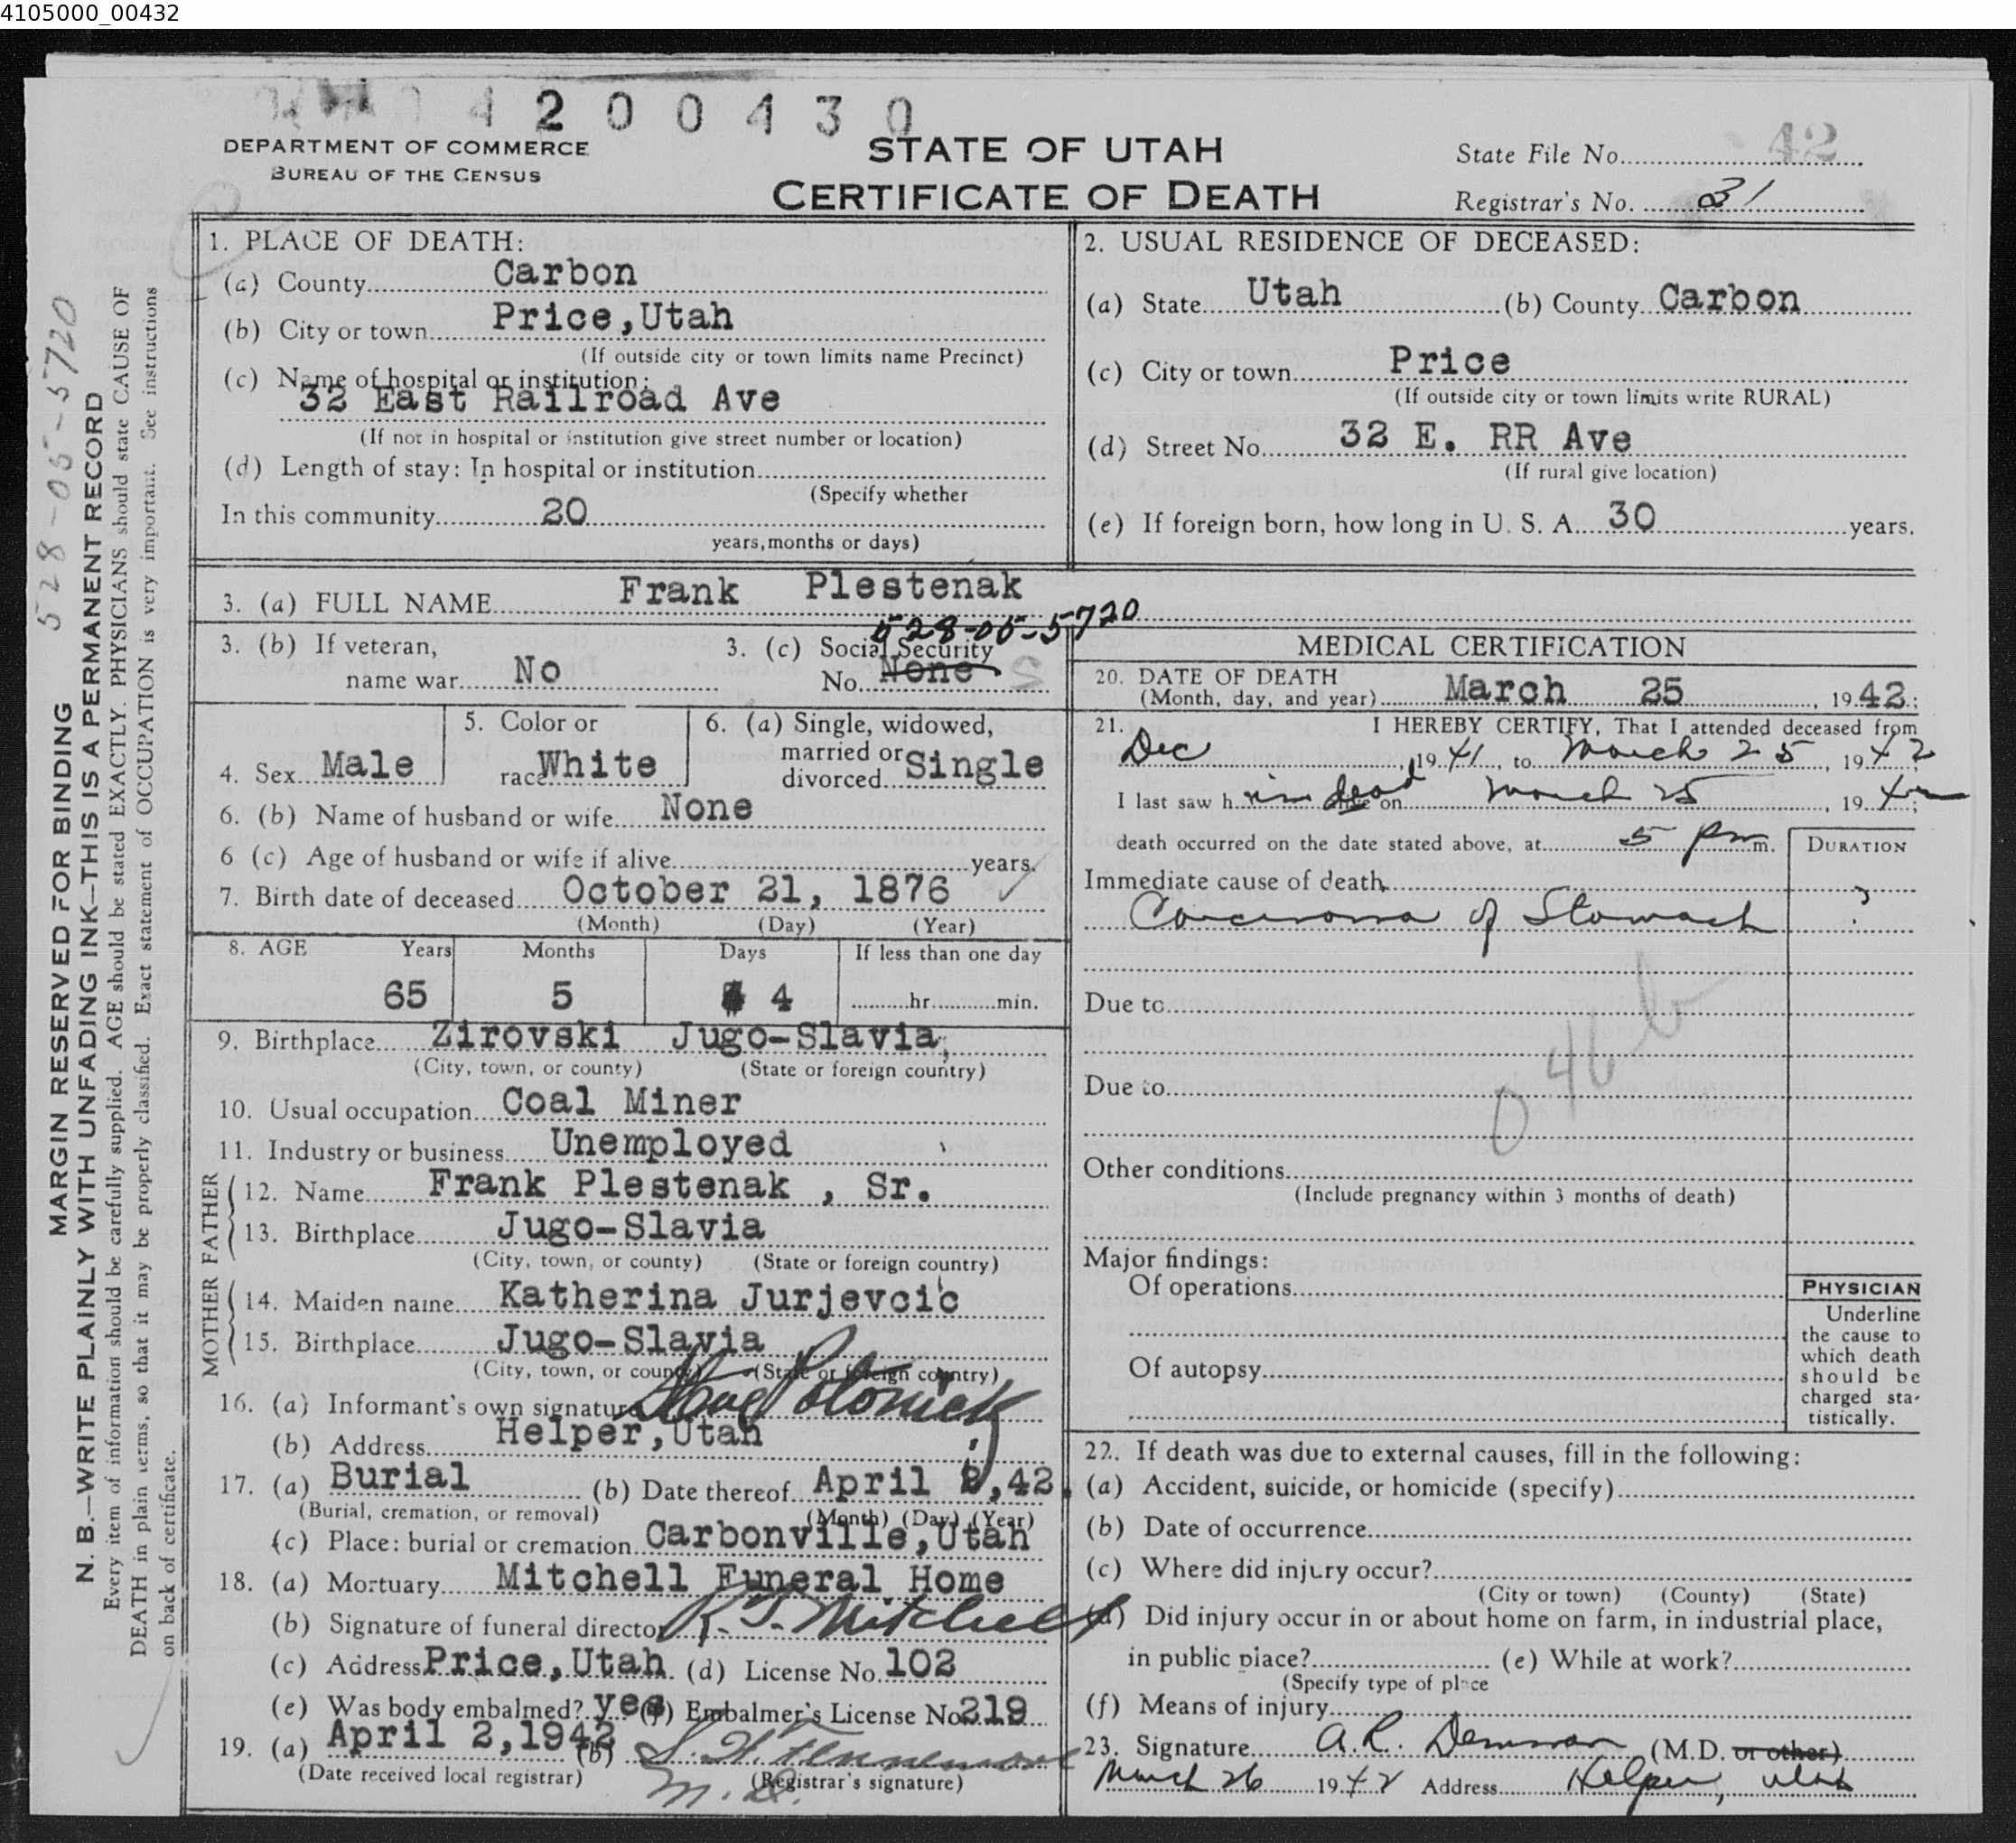 4105000_00432
4 2 0 0 4 3 0
DEPARTMENT OF COMMERCE
BUREAU OF THE CENSUS
STATE OF UTAH
CERTIFICATE OF DEATH
State File No. 42
Registrar's No. 31
MARGIN RESERVED FOR BINDING
N. B.—WRITE PLAINLY WITH UNFADING INK—THIS IS A PERMANENT RECORD
Every item of information should be carefully supplied. AGE should be stated EXACTLY. PHYSICIANS should state CAUSE OF
DEATH in plain terms, so that it may be properly classified. Exact statement of OCCUPATION is very important. See instructions
on back of certificate.
528-05-5720
1. PLACE OF DEATH:
(a) County Carbon
(b) City or town Price, Utah
(If outside city or town limits name Precinct)
(c) Name of hospital or institution:
32 East Railroad Ave
(If not in hospital or institution give street number or location)
(d) Length of stay: In hospital or institution
(Specify whether
In this community 20
years, months or days)
2. USUAL RESIDENCE OF DECEASED:
(a) State Utah (b) County Carbon
(c) City or town Price
(If outside city or town limits write RURAL)
(d) Street No. 32 E. RR Ave
(If rural give location)
(e) If foreign born, how long in U. S. A. 30 years.
3. (a) FULL NAME Frank Plestenak
528-05-5720
3. (b) If veteran, 3. (c) Social Security
name war No No. None
4. Sex Male
5. Color or
race White
6. (a) Single, widowed,
married or
divorced Single
6. (b) Name of husband or wife None
6 (c) Age of husband or wife if alive years.
7. Birth date of deceased October 21, 1876
(Month) (Day) (Year)
8. AGE Years Months Days If less than one day
65 5 4 hr. min.
9. Birthplace Zirovski Jugo-Slavia,
(City, town, or county) (State or foreign country)
10. Usual occupation Coal Miner
11. Industry or business Unemployed
FATHER
12. Name Frank Plestenak , Sr.
13. Birthplace Jugo-Slavia
(City, town, or county) (State or foreign country)
MOTHER
14. Maiden name Katherina Jurjevcic
15. Birthplace Jugo-Slavia
(City, town, or county) (State or foreign country)
16. (a) Informant's own signature
(b) Address Helper, Utah
17. (a) Burial (b) Date thereof April 2, 42
(Burial, cremation, or removal) (Month) (Day) (Year)
(c) Place: burial or cremation Carbonville, Utah
18. (a) Mortuary Mitchell Funeral Home
(b) Signature of funeral director Mitchell
(c) Address Price, Utah (d) License No. 102
(e) Was body embalmed? yes (f) Embalmer's License No. 219
19. (a) April 2, 1942 (b) M.D.
(Date received local registrar) (Registrar's signature)
MEDICAL CERTIFICATION
20. DATE OF DEATH
(Month, day, and year) March 25, 1942;
21. I HEREBY CERTIFY, That I attended deceased from
Dec, 1941, to March 25, 1942;
I last saw him dead on March 25, 1942;
death occurred on the date stated above, at 5 pm m. DURATION
Immediate cause of death
Carcinoma of Stomach ?
Due to
046b
Due to
Other conditions
(Include pregnancy within 3 months of death)
Major findings:
Of operations
Of autopsy
PHYSICIAN
Underline
the cause to
which death
should be
charged sta-
tistically.
22. If death was due to external causes, fill in the following:
(a) Accident, suicide, or homicide (specify)
(b) Date of occurrence
(c) Where did injury occur?
(City or town) (County) (State)
(d) Did injury occur in or about home on farm, in industrial place,
in public place? (e) While at work?
(Specify type of place
(f) Means of injury
23. Signature A.R. Demman (M.D. or other)
March 26 1942 Address Helper, Utah